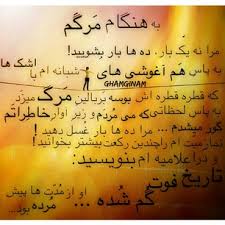 به هنگام مَرگم
مرا نه یک بار. ده ها بار بشویید!
به پاس هَم آغوشی های شبانه ام با اشک ها
GHAMGINAM
که قطره قطره اش بوسه بربالین مَرگ میزد
به پاس لحظاتی که می مُردم و زیر آوار خاطراتم
گور میشدم... مرا ده ها بار غسل دهید!
نمازمیت ام راچندین رکعت بیشتر بخوانید!
و دراعلامیه ام بنویسید:
تاریخ فوت
گم شده ... او از مُدت ها پیش
مُرده بود...